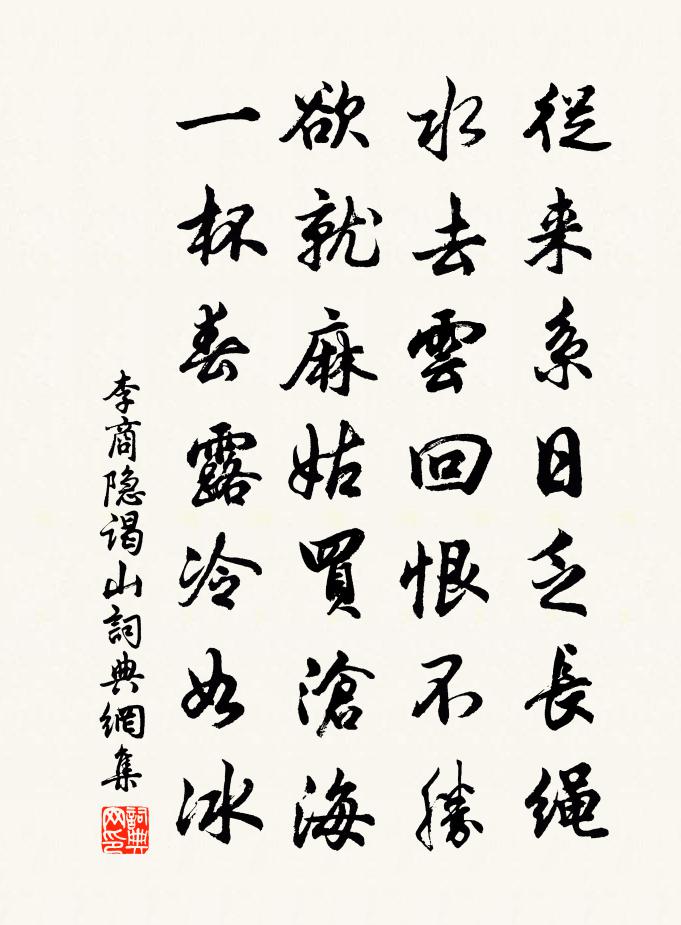 從来系日乏長绳
水去雲回恨不勝
欲就麻姑買滄海
一杯春露冷如冰
李商隐谒山詞典網集
詞典网印